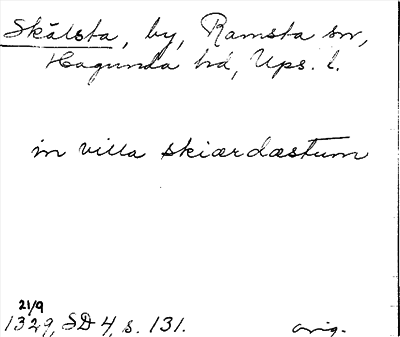 Skälsta, by, Ramsta sn,
Hagunda hd, Ups. l.
in villa skiærdæstum
21/9
1329, SD 4, s. 131.
orig.